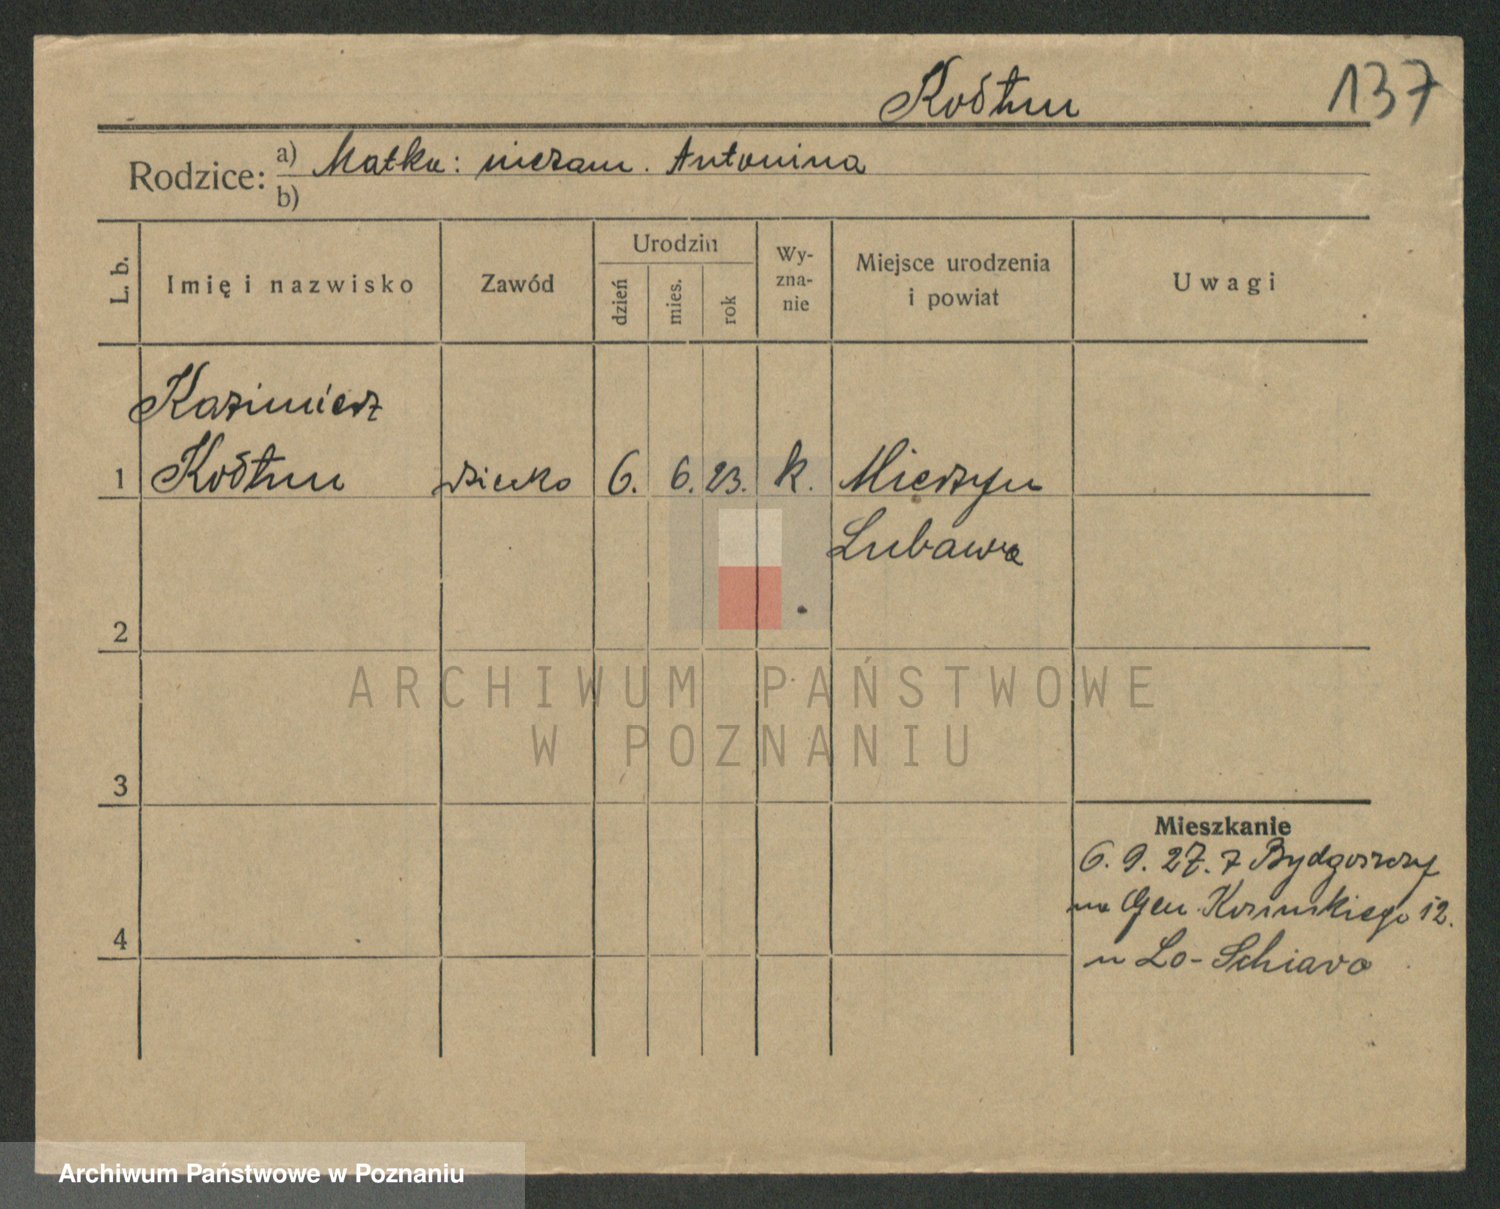 Kostun
137
Rodzice: a) Matka: niezam. Antonina
b)
L. b.
Imię i nazwisko
Zawód
Urodzin
dzień
mies.
rok
Wy-
zna-
nie
Miejsce urodzenia
i powiat
Uwagi
Kazimierz
1 dziecko 6. 6. 23. k. Mierzyn
Lubawa
2
3
4
ARCHIWUM PAŃSTWOWE
W POZNANIU
Mieszkanie
6. 9. 27. z Bydgoszczy
na Gen. 12.
u Lo-Schiavo
Archiwum Państwowe w Poznaniu